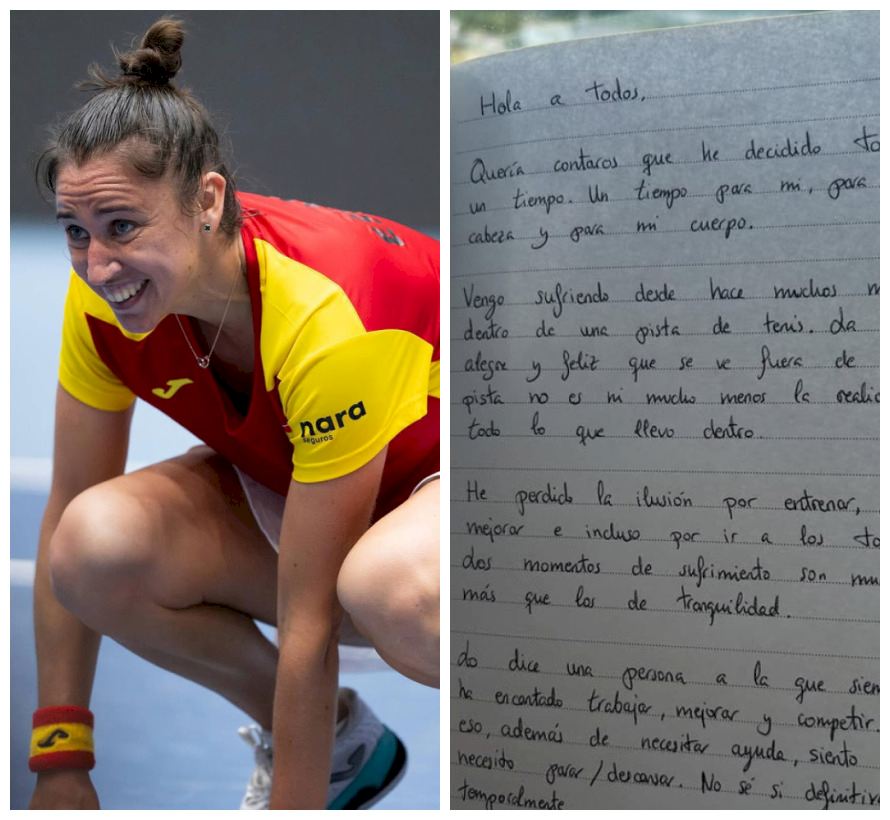 nara
seguros
Hola a todos,
Quería contaros que he decidido to
un tiempo. Un tiempo para mi, para
cabeza y para mi cuerpo.
Vengo sufriendo desde hace muchos m
dentro de una pista de tenis. La
alegre y feliz que se ve fuera de
pista no es ni mucho menos la realid
todo lo que llevo dentro.
He perdido la ilusión por entrenar,
mejorar e incluso por ir a los to
Los momentos de sufrimiento son mu
más que los de tranquilidad.
Lo dice una persona a la que siem
ha encantado trabajar, mejorar y competir.
eso, además de necesitar ayuda, siento
necesito parar/descansar. No sé si definitiv
temporalmente